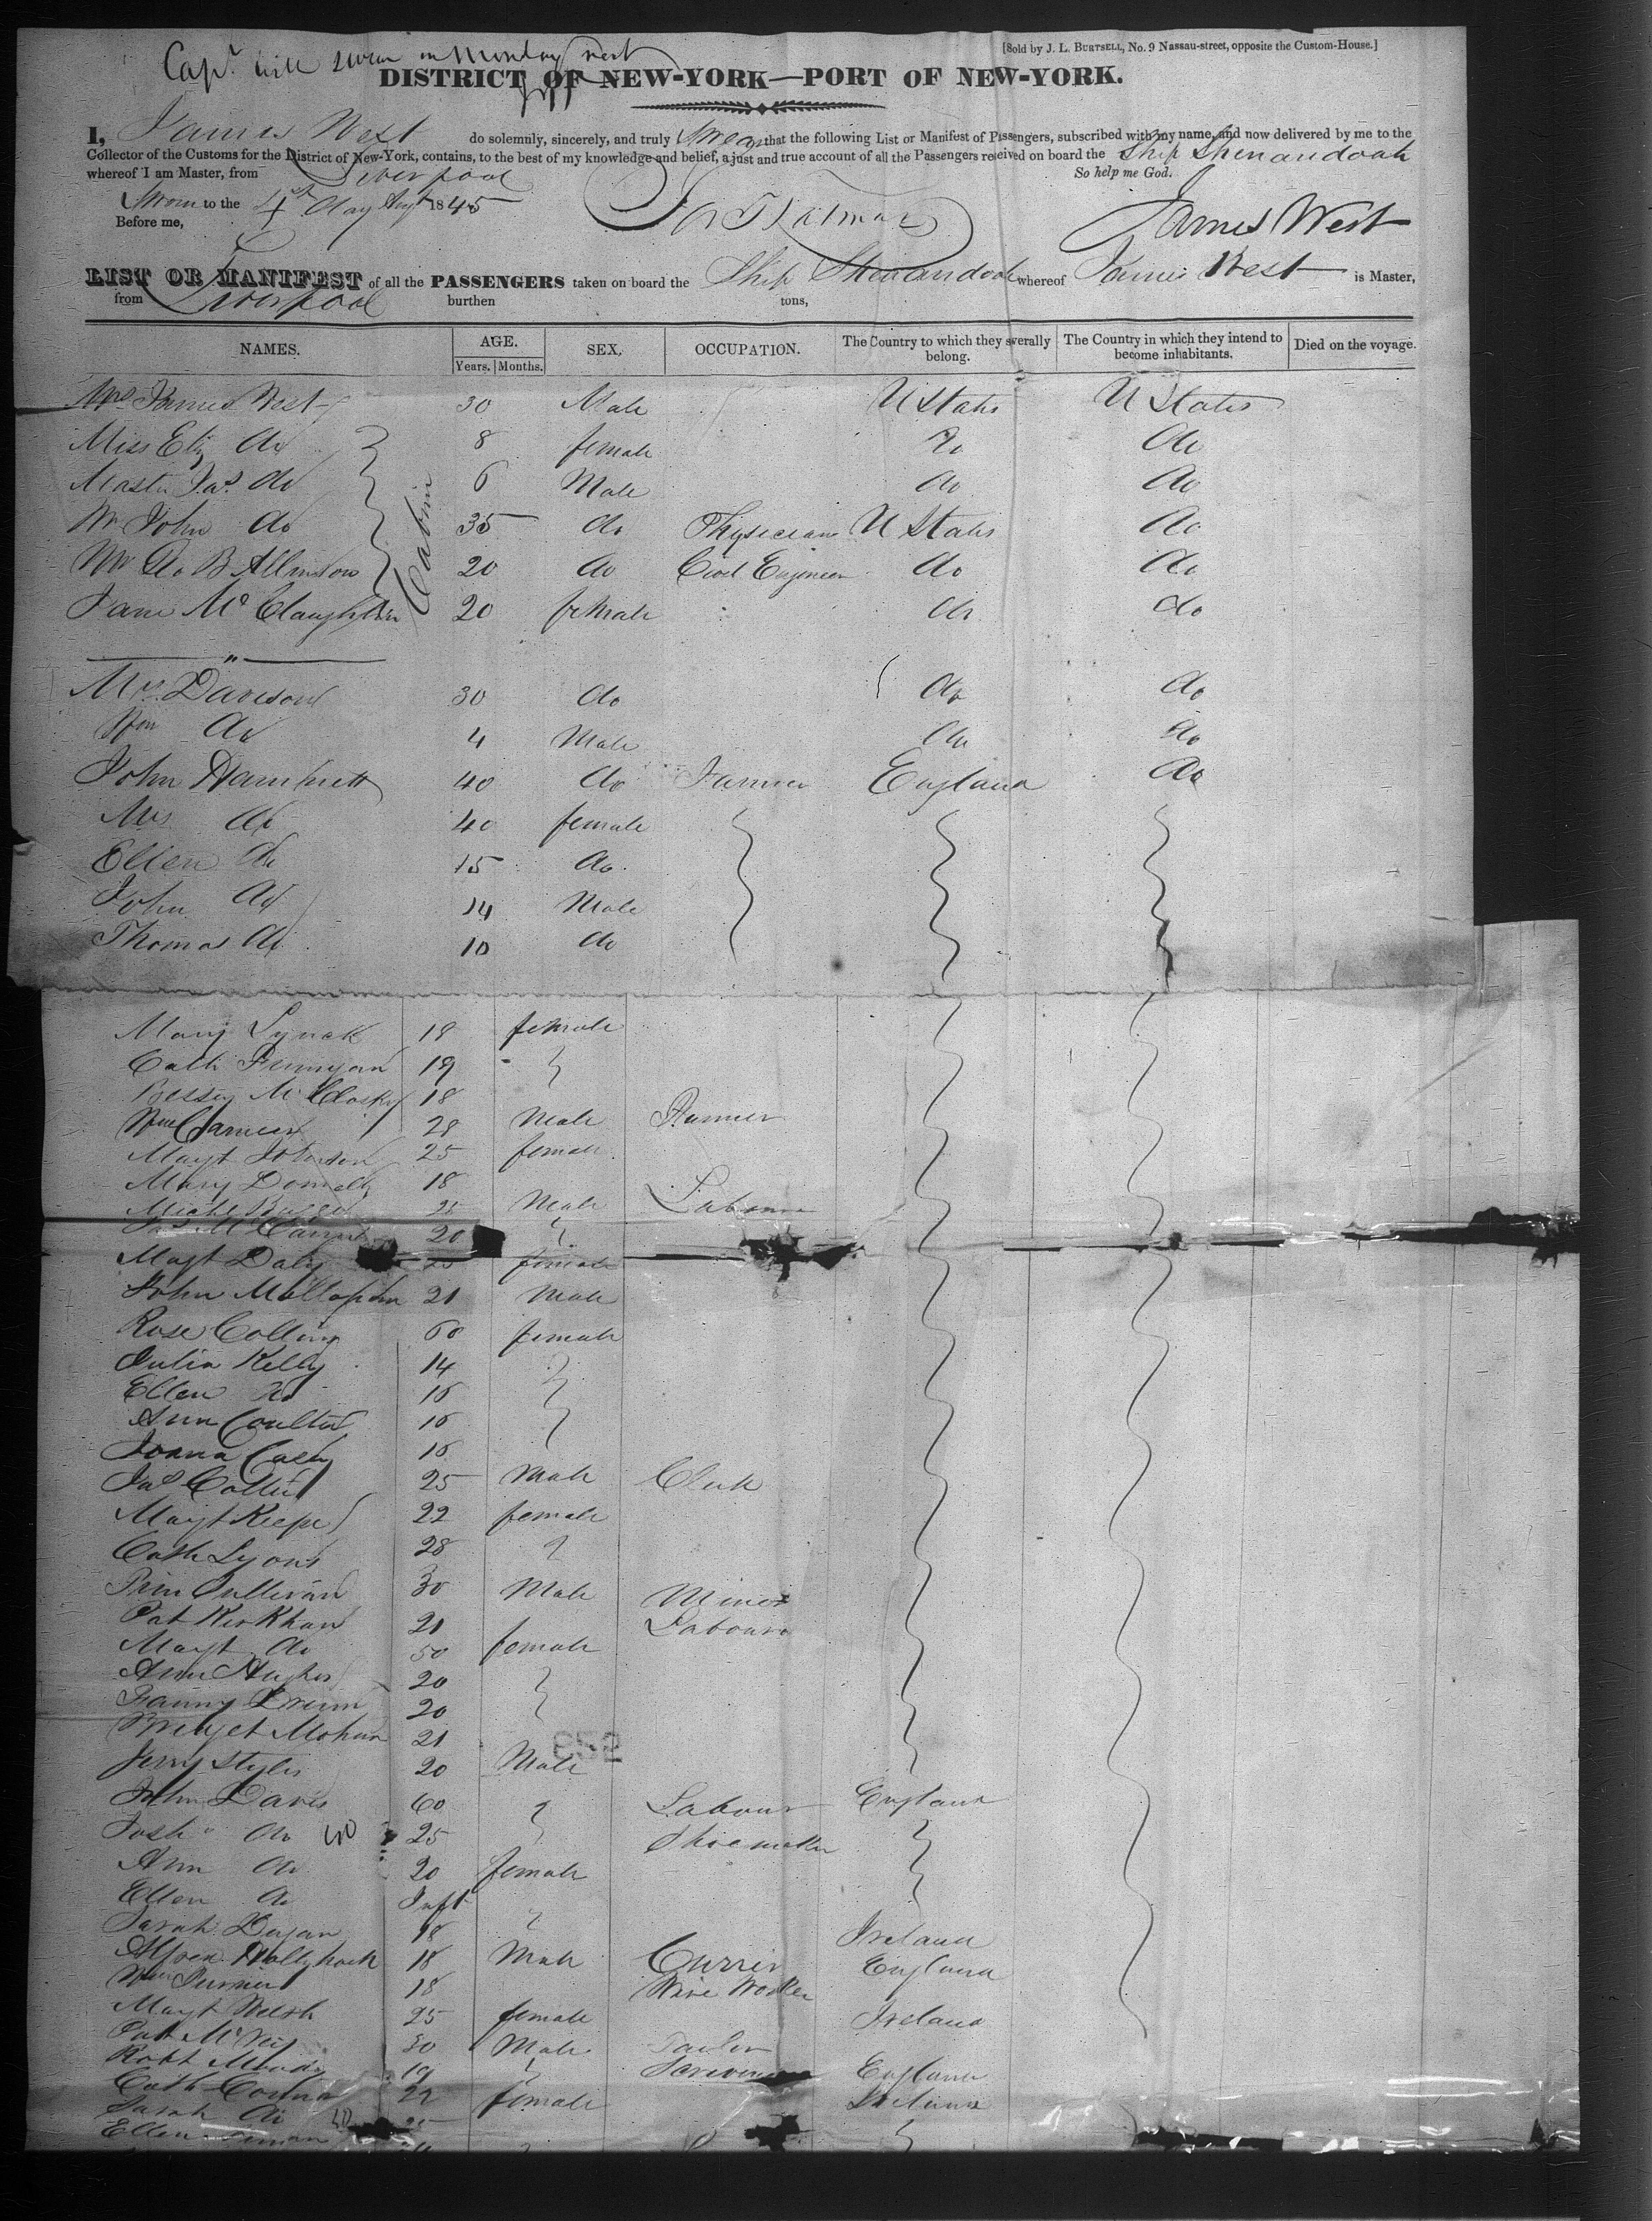 Capt. will swear on Monday next
[Sold by J. L. BURTSELL, No. 9 Nassau-street, opposite the Custom-House.]
DISTRICT OF NEW-YORK—PORT OF NEW-YORK.
I, James West do solemnly, sincerely, and truly swear that the following List or Manifest of Passengers, subscribed with my name, and now delivered by me to the
Collector of the Customs for the District of New-York, contains, to the best of my knowledge and belief, a just and true account of all the Passengers received on board the Ship Shenandoah
whereof I am Master, from Liverpool So help me God.
Sworn to the 4 day Augt 1845
Before me, James West
LIST OR MANIFEST of all the PASSENGERS taken on board the Ship Shenandoah whereof James West is Master,
from Liverpool burthen tons,
NAMES. AGE. SEX. OCCUPATION. The Country to which they severally belong. The Country in which they intend to become inhabitants. Died on the voyage.
Years. Months.
Mrs James West 30 Male U States U States
Miss Eliz do 8 female do do
Master Jas. do 6 Male do do
Cabin
Mr John do 35 do Physician U States do
Mr Geo B Allinson 20 do Civil Engineer do do
Jane McClaughlin 20 female do do
Mrs Davison 30 do do do
Wm do 4 Male do do
John 40 do Farmer England do
Mrs do 40 female
Ellen do 15 do
John do 14 Male
Thomas do 10 do
Mary Lynch 18 female
Cath 19
Bessey McClosky 18
Wm 28 Male Farmer
Magt Johnson 25 female
Mary Donnelly 18
Michl 25 Male Labourer
20
Magt Daly 25 female
John 21 Male
Rose Collins 60 female
Julia Kelly 14
Ellen do 16
Ann Coulter 16
16
Jas 25 Male Clerk
Magt 22 female
Cath Lyons 28
Sullivan 30 Male Miner
Pat Kirkham 21 Labourer
Magt do 50 female
Ann Hughes 20
Fanny 20
Bridget Mohan 21
Jerry Styles 20 Male
652
John Davis 60 Labour England
Josh do 25 Shoemaker
Ann do 20 female
Ellen do Inft
Sarah Dugan 18 Ireland
Alfred Hollyhock 18 Male Currier England
Wm Turner 18 Wire Worker
Magt Welsh 25 female Ireland
Pat 30 Male Tailor
Robt 19 England
Cath 22 female Ireland
Sarah do 25
Ellen